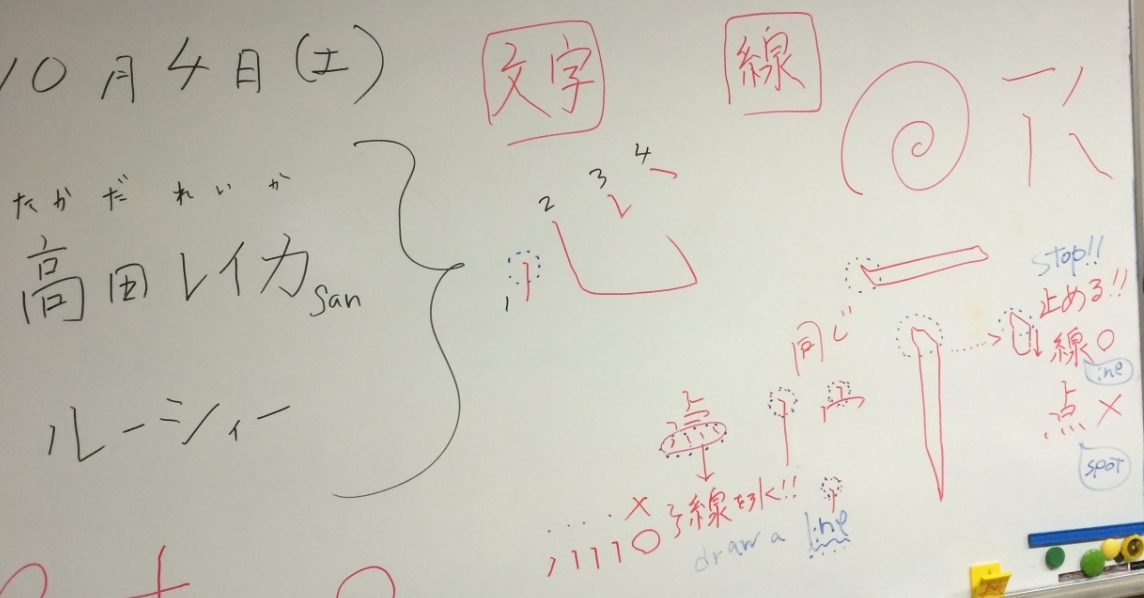 10月4日(土)
たかだ れいか
高田レイカsan
ルーシィー
文字
線
1 2 3 4
同じ
stop!!
止める!!
線○
line
点×
spot
点
....×
○
線を引く!!
draw a line